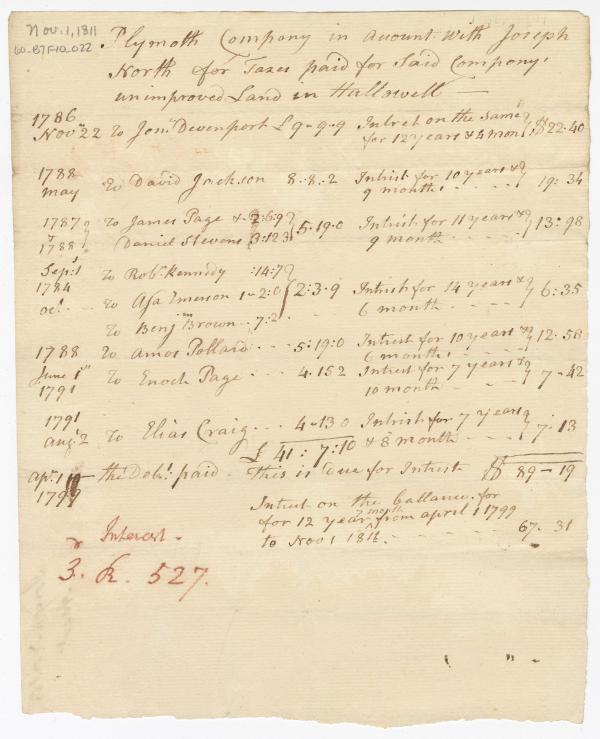 Nov. 1, 1811
60-B7F10-022
Plymoth Company in Account with Joseph
North for Taxes paid for Said Company,
unimproved Land in Hallowell —
1786
Novr 22 to Jonn Devenport £ 9-9-9 Intrest on the same for 12 years & 4 mon $22-40
1788
may to David Jackson 8-8-2 Intrist for 10 years & 9 months $ 19: 34
1787 to James Page & 2:6:9
& 1788 Daniel Stevens 3:12:3 5-19-0 Intrist for 11 years & 9 month 13-98
Sept 1 to Robt Kennedy :14:7
1784
oct to Asa Emerson 1-2:0 2:3-9 Intrest for 14 years & 6 month 6:35
to Benjm Brown 7:2
1788 to Amos Pollard 5:19:0 Intrest for 10 years & 6 months 12-58
June 1st
1791 to Enoch Page 4-15 2 Intrest for 7 years & 10 month 7-42
1791
Augt 2 to Elias Craig 4-13 0 Intrist for 7 years & 8 month 7-13
£ 41: 7:10
Apr. 1
1799 the Debt paid. This is due for Intrest $ 89-19
Intrest on the ballance for
for 12 years 7 month from april 1 1799
to Nov 1 1811 67-31
Interest -
3. R. 527.